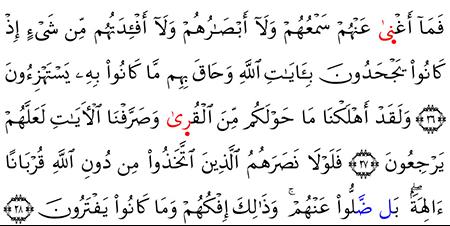 فَمَآ أَغْنِىٰ عَنْهُمْ سَمْعُهُمْ وَلَآ أَبْصَٰرُهُمْ وَلَآ أَفْـِٔدَتُهُم مِّن شَىْءٍ إِذْ
كَانُوا۟ يَجْحَدُونَ بِـَٔايَٰتِ ٱللَّهِ وَحَاقَ بِهِم مَّا كَانُوا۟ بِهِۦ يَسْتَهْزِءُونَ
﴿٢٦﴾ وَلَقَدْ أَهْلَكْنَا مَا حَوْلَكُم مِّنَ ٱلْقُرِىٰ وَصَرَّفْنَا ٱلْأَيَٰتِ لَعَلَّهُمْ
يَرْجِعُونَ ﴿٢٧﴾ فَلَوْلَا نَصَرَهُمُ ٱلَّذِينَ ٱتَّخَذُوا۟ مِن دُونِ ٱللَّهِ قُرْبَانًا
ءَالِهَةًۢ ۖ بَل ضَّلُّوا۟ عَنْهُمْ ۚ وَذَٰلِكَ إِفْكُهُمْ وَمَا كَانُوا۟ يَفْتَرُونَ ﴿٢٨﴾